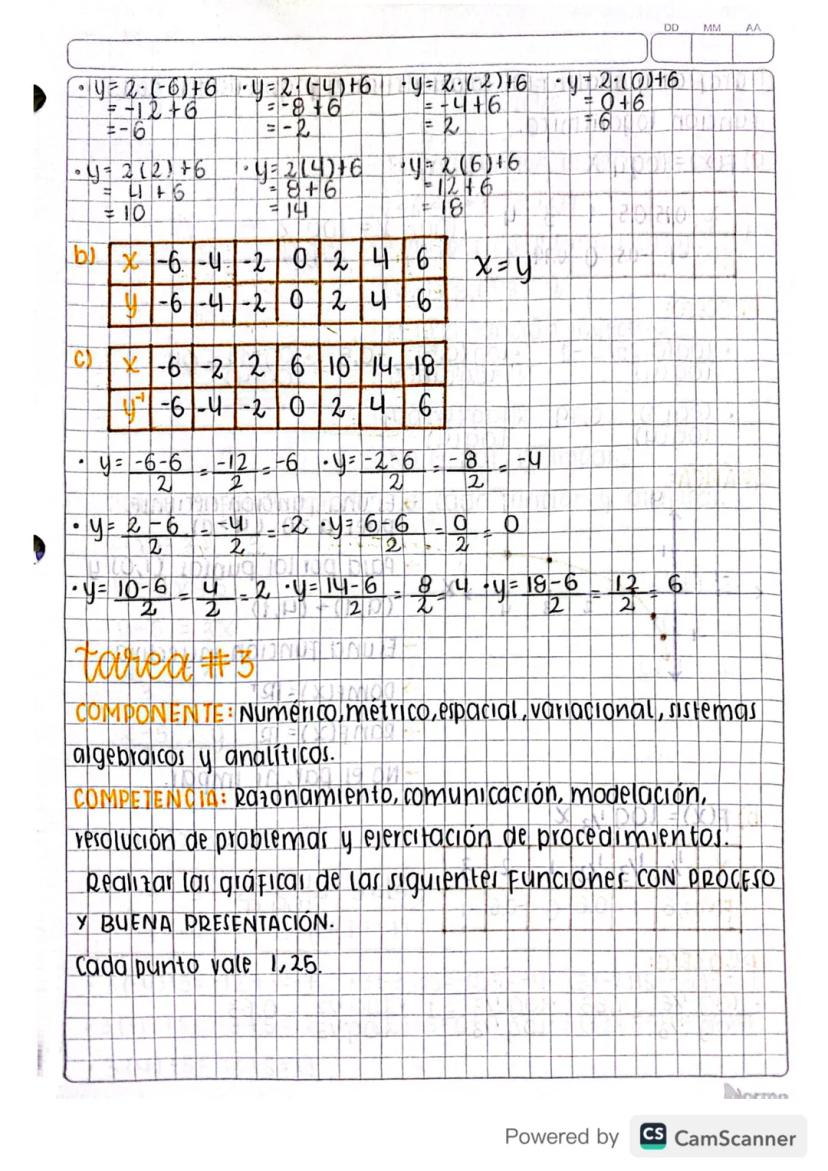 DD MM AA
· y = 2·(-6)+6 · y = 2·(-4)+6 · y = 2·(-2)+6 · y = 2·(0)+6
= -12 +6 = -8 +6 = -4+6 = 0+6
= -6 = -2 = 2 = 6
· y = 2(2)+6 · y = 2(4)+6 · y = 2(6)+6
= 4 + 6 = 8+6 = 12+6
= 10 = 14 = 18
b) x -6 -4 -2 0 2 4 6 x = y
y -6 -4 -2 0 2 4 6
c) x -6 -2 2 6 10 14 18
y⁻¹ -6 -4 -2 0 2 4 6
· y = -6-6/2 = -12/2 = -6 · y = -2-6/2 = -8/2 = -4
· y = 2-6/2 = -4/2 = -2 · y = 6-6/2 = 0/2 = 0
· y = 10-6/2 = 4/2 = 2 · y = 14-6/2 = 8/2 = 4 · y = 18-6/2 = 12/2 = 6
tarea #3
COMPONENTE: Numérico, métrico, espacial, variacional, sistemas
algebraicos y analíticos.
COMPETENCIA: Razonamiento, comunicación, modelación,
resolución de problemas y ejercitación de procedimientos.
Realizar las gráficas de las siguientes funciones CON PROCESO
Y BUENA PRESENTACIÓN.
Cada punto vale 1,25.
Norma
Powered by CS CamScanner